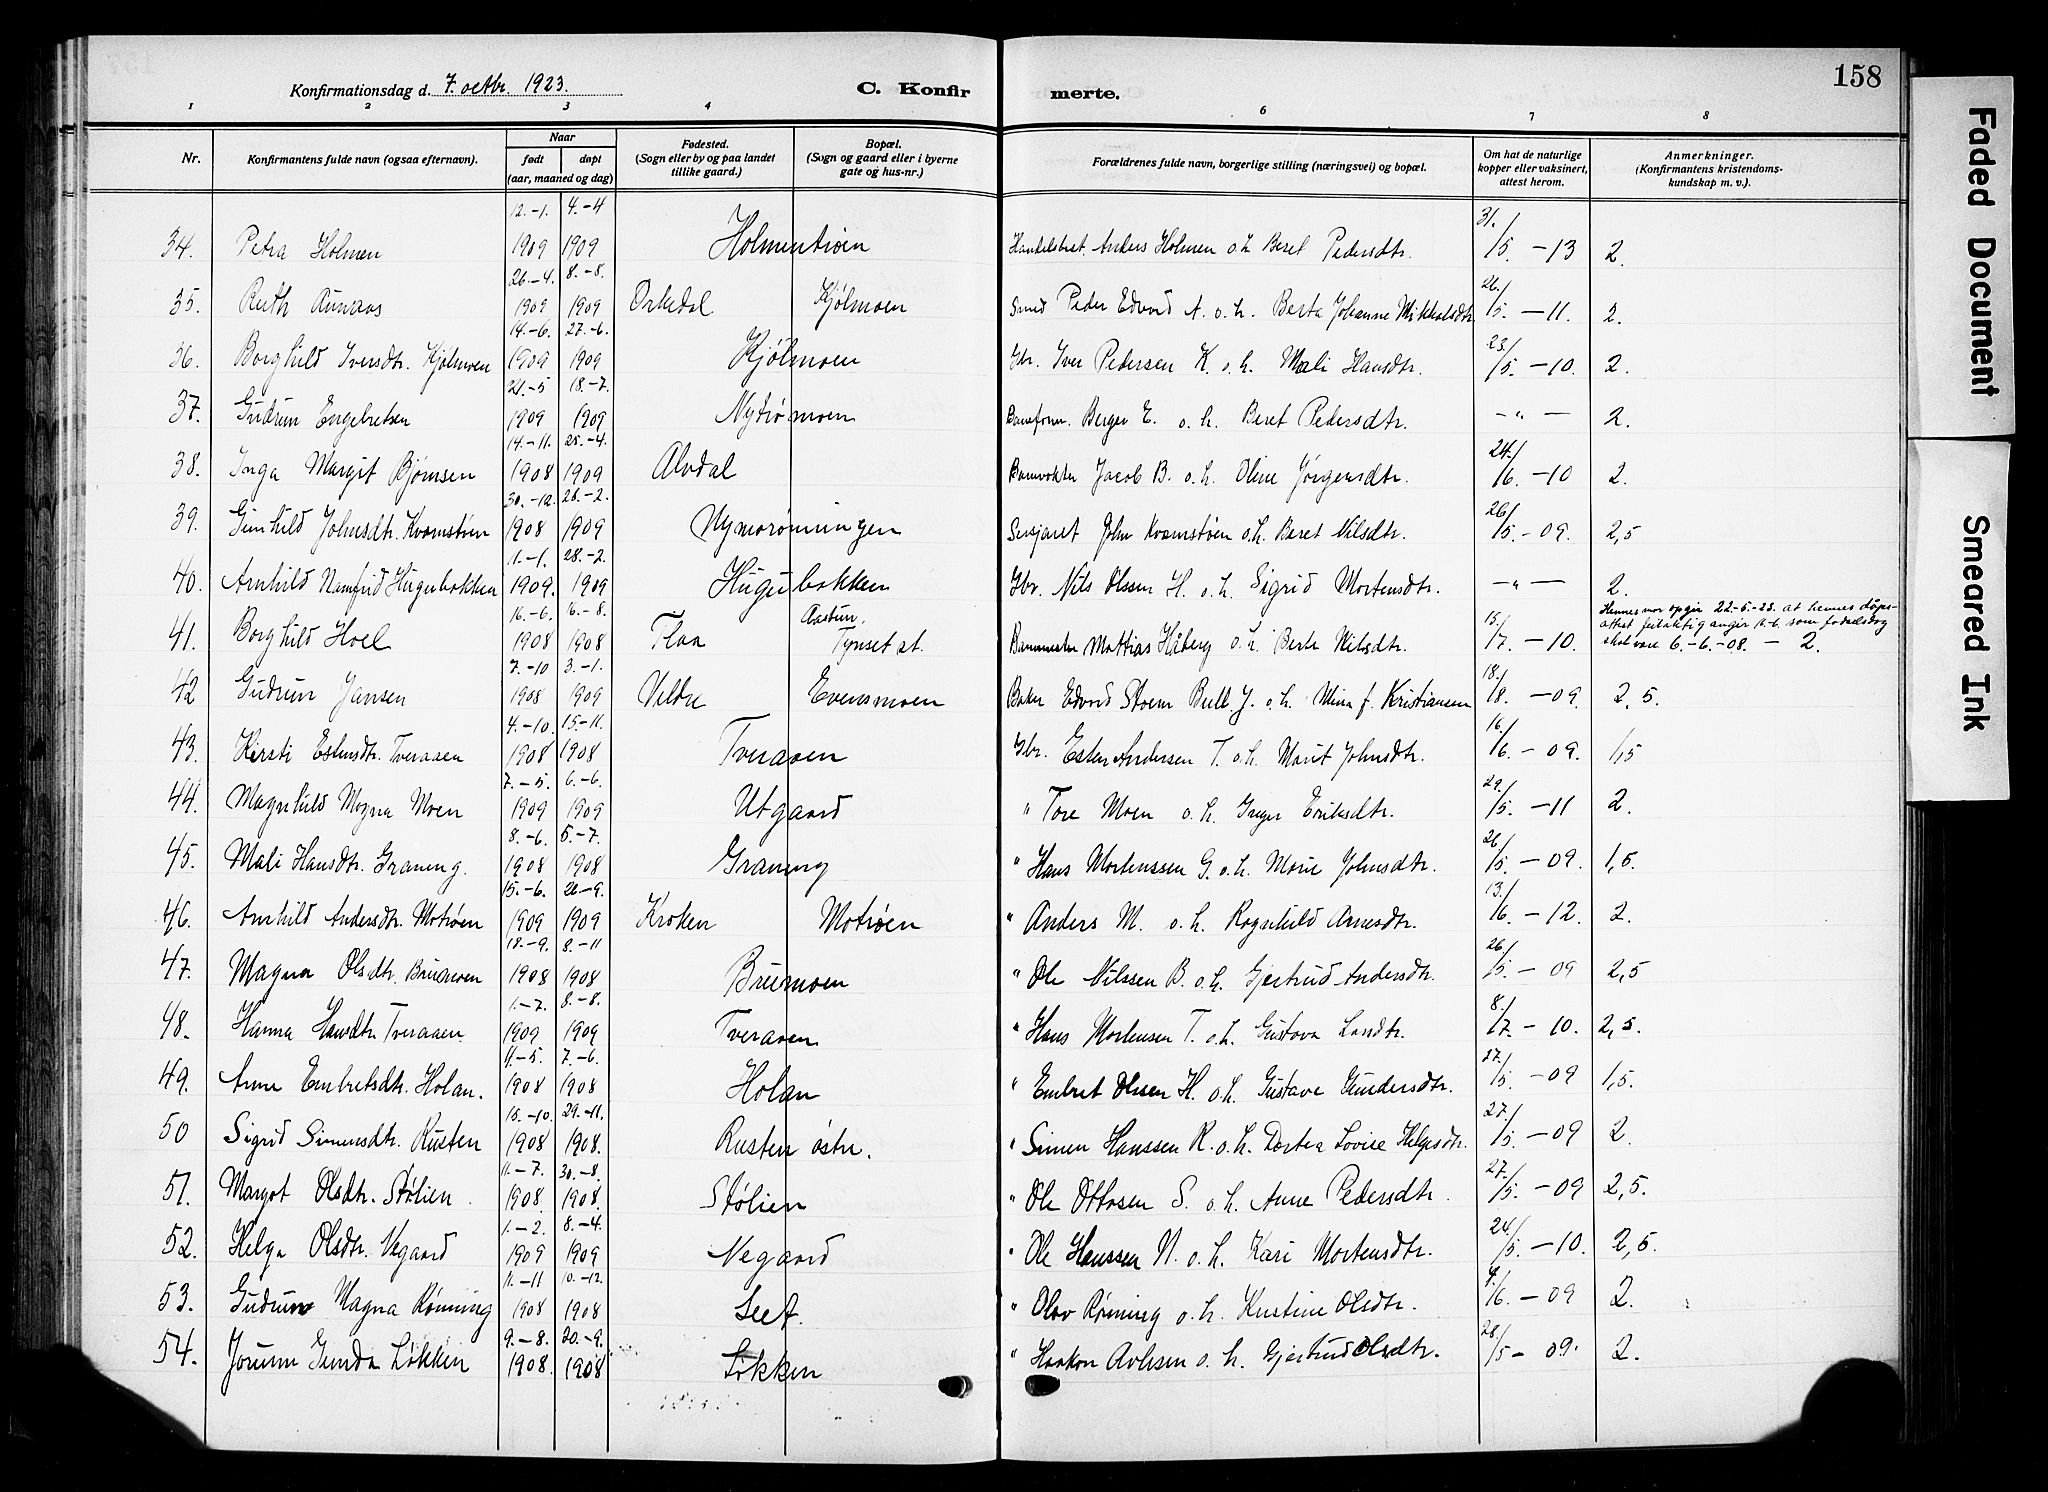 158
Konfirmationsdag d. 7. octbr. 1923.
C. Konfirmerte.
1 2 3 4 6 7 8
Nr.
Konfirmantens fulde navn (ogsaa efternavn).
Naar
født
døpt
(aar, maaned og dag)
Fødested.
(Sogn eller by og paa landet
tillike gaard.)
Bopæl.
(Sogn og gaard eller i byerne
gate og hus-nr.)
Forældrenes fulde navn, borgerlige stilling (næringsvei) og bopæl.
Om hat de naturlige
kopper eller vaksinert,
attest herom.
Anmerkninger.
(Konfirmantens kristendoms-
kundskap m. v.).
34. Petra Holmen 12.-1. 1909 4.-4 1909 Holmentrøen Anders Holmen o.h. Beret Pedersdtr. 31./5 -13 2.
35. Ruth Aunaas 26.-4. 1909 8.-8. 1909 Orkedal Kjølmoen Smed Peder Edvard A. o.h. Berta Johanne Mikkalsdtr 26./5. -11. 2.
36. Borghild Iversdtr. Kjølmoen 14.-6. 1909 27.-6. 1909 Kjølmoen Gbr. Iver Pedersen K. o.h. Mali Hansdtr. 23./5. -10. 2.
37. Gudrun Engebretsen 21.-5 1909 18.-7. 1909 Nytrømoen Baneform. Berger E. o.h. Beret Pedersdtr. -"- 2.
38. Inga Margit Bjørnsen 14.-11. 1908 25.-4. 1909 Alvdal Banevokter Jacob B. o.h. Oline Jørgensdtr. 24./6. -10 2.
39. Gunhild Johnsdtr. Kvamstøen 30.-12. 1908 26.-2. 1909 Nymorønningen John Kvamstøen o.h. Beret Nilsdtr. 26/5. -09. 2,5
40. Arnhild Hugubakken 11.-1. 1909. 28.-2. 1909 Hugubakken Gbr. Nils Olssen H. o.h. Sigrid Mortensdtr. -"- 2.
41. Borghild Hoel 16.-6. 1908 16.-8. 1908 Flaa Aastun, Tynset st. Banemester Mattias Håberg o.h. Berte Nilsdtr. 15./7. -10. Hennes mor opgir 22-5-23. at hennes dåps-
attest feilaktig angir 16-6 som fødselsdag
skal være 6.-6.-08. - 2.
42 Gudrun Jansen 7.-10 1908 3.-1. 1909 Veldre Evensmoen Baker Edvard Storm Bull J. o.h. Mina f. Kristiansen 18./8. -09. 2,5.
43. Kirsti Estensdtr. Tveraaen 4.-10. 1908 15.-11. 1908 Tveraaen Gbr. Esten Andersen T. o.h. Marit Johnsdtr. 16./6. -09. 1,5
44. Magnhild Magna Moen 7.-5 1909 6.-6. 1909 Utgaard " Tore Moen o.h. Inger Eriksdtr. 29./5. -11 2.
45. Mali Hansdtr. Graneng. 8.-6. 1908 5.-7. 1908 Graneng " Hans Mortenssen G. o.h. Marie Johnsdtr. 26/5. -09. 1,5.
46. Arnhild Andersdtr. Motrøen 15.-6. 1909 26.-9. 1909 Kroken Motrøen " Anders M. o.h. Ragnhild Arnesdtr. 13./6. -12. 2.
47. Magna Olsdtr. Brumoen 18.-9. 1908 8.-11 1908 Brumoen " Ole Nilssen B. o.h. Gjertrud Andersdtr. 26/5. -09 2,5
48. Hanna Hansdtr. Tveraaen 1.-7. 1909 8.-8. 1909 Tveraaen " Hans Mortensen T. o.h. Gustava Larsdtr. 8./7. -10. 2,5.
49. Anne Embretsdtr. Holan. 11.-5. 1908 7.-6. 1908 Holan " Embret Olssen H. o.h. Gustava Gundersdtr. 27./5. -09 1,5.
50 Sigrid Simensdtr. Rusten 15.-10. 1908 29.-11. 1908. Rusten østr. " Simen Hanssen R. o.h. Dortea Lovise Helgesdtr. 27/5. -09 2.
51. Margot Olsdtr. Stølien. 11.-7. 1908 30.-8. 1908. Stølien " Ole Ottosen S. o.h. Anne Pedersdtr. 27./5. -09 2,5.
52. Helga Olsdtr. Negaard 1.-2. 1909 8.-4. 1909 Negaard " Ole Hanssen N. o.h. Kari Mortensdtr. 24/5. -10. 2,5.
53. Gudrun Magna Rønning 11.-11 1908 10.-12. 1908 Seet. " Olav Rønning o.h. Kristine Olsdtr. 4./6. -09 2.
54. Jorunn Gunda Løkken 9.-8. 1908. 20.-9. 1908 Løkken " Haakon Avlesen o.h. Gjertrud Olsdtr. 28/5 -09. 2.
Faded Document
Smeared Ink